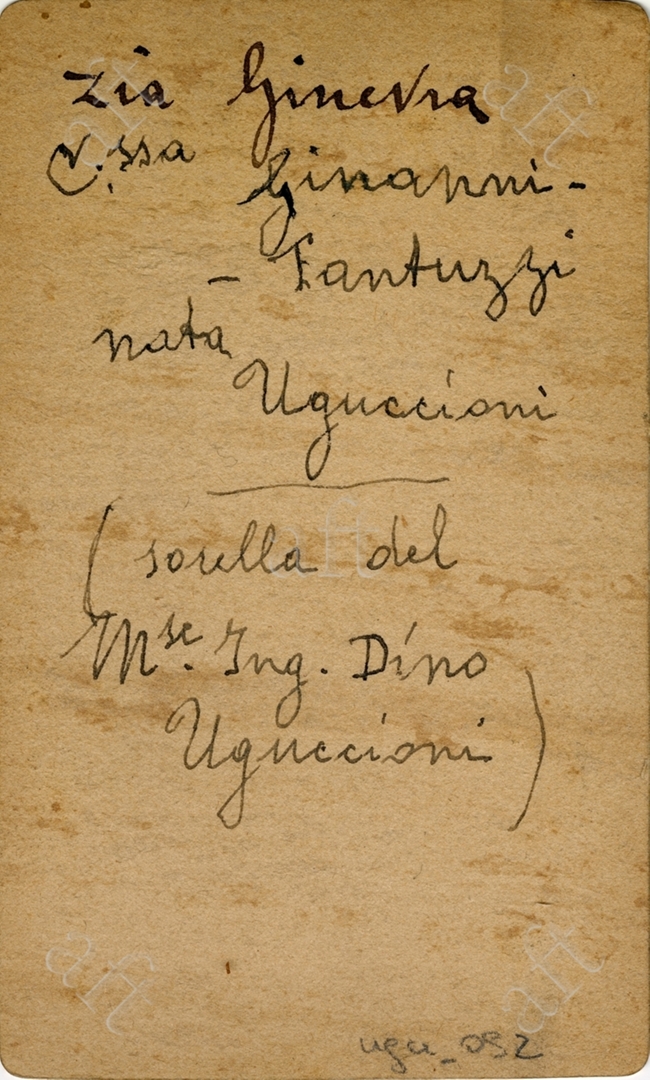 zia Ginevra
C.ssa Ginanni-
- Fantuzzi
nata
Uguccioni
(sorella del
Mse. Ing. Dino
Uguccioni)
aft
aft
aft
aft
aft
ugu_092